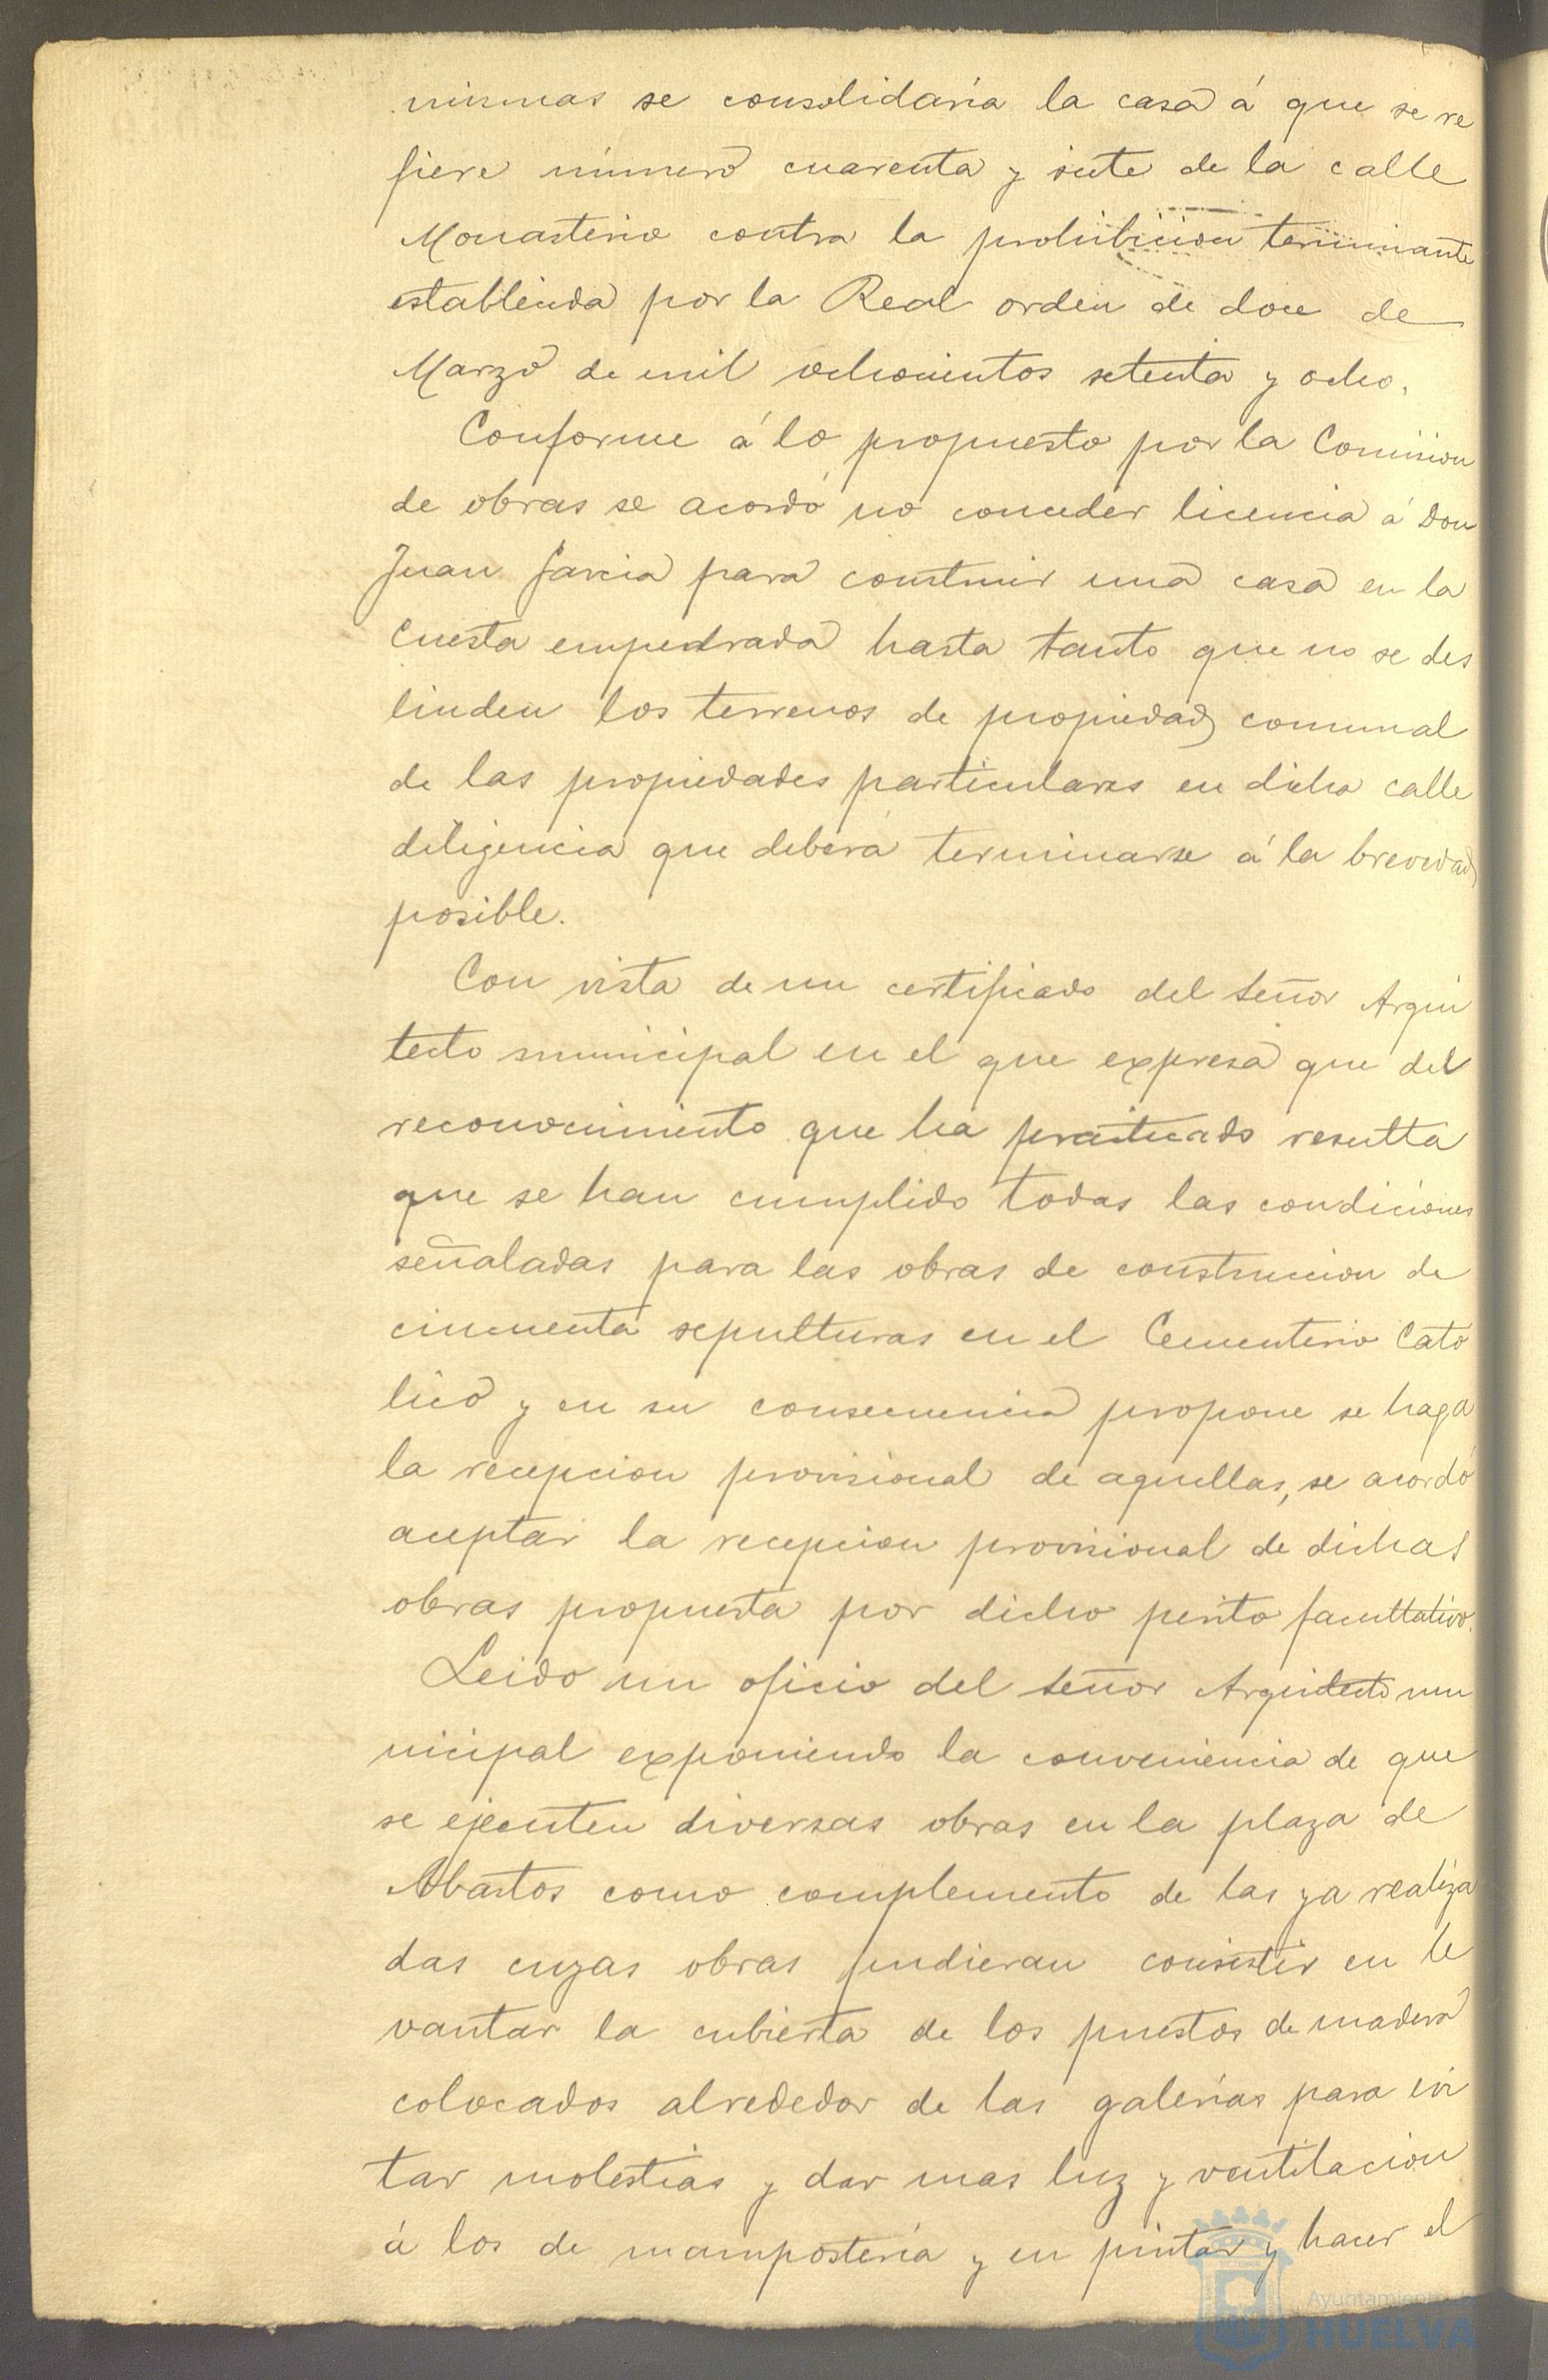 mismas se consolidaria la casa á que se re
fiere número cuarenta y siete de la calle
Monasterio contra la prohibicion terminante
establecida por la Real orden de doce de
Marzo de mil ochocientos setenta y ocho.
Conforme á lo propuesto por la Comision
de obras se acordó no conceder licencia á Don
Juan Garcia para construir una casa en la
Cuesta empedrada hasta tanto que no se des
linden los terrenos de propiedad comunal
de las propiedades particulares en dicha calle
diligencia que deberá terminarse á la brevedad
posible.
Con vista de un certificado del Señor Arqui
tecto municipal en el que expresa que del
reconocimiento que ha practicado resulta
que se han cumplido todas las condiciones
señaladas para las obras de construccion de
cincuenta sepulturas en el Cementerio Cató
lico y en su consecuencia propone se haga
la recepcion provisional de aquellas, se acordó
aceptar la recepcion provisional de dichas
obras propuesta por dicho perito facultativo.
Leido un oficio del Señor Arquitecto mu
nicipal exponiendo la conveniencia de que
se ejecuten diversas obras en la plaza de
Abastos como complemento de las ya realiza
das cuyas obras pudieran consistir en le
vantar la cubierta de los puestos de madera
colocados alrededor de las galerías para evi
tar molestias y dar mas luz y ventilacion
á los de mampostería y en pintar y hacer el
Ayuntamiento de
HUELVA